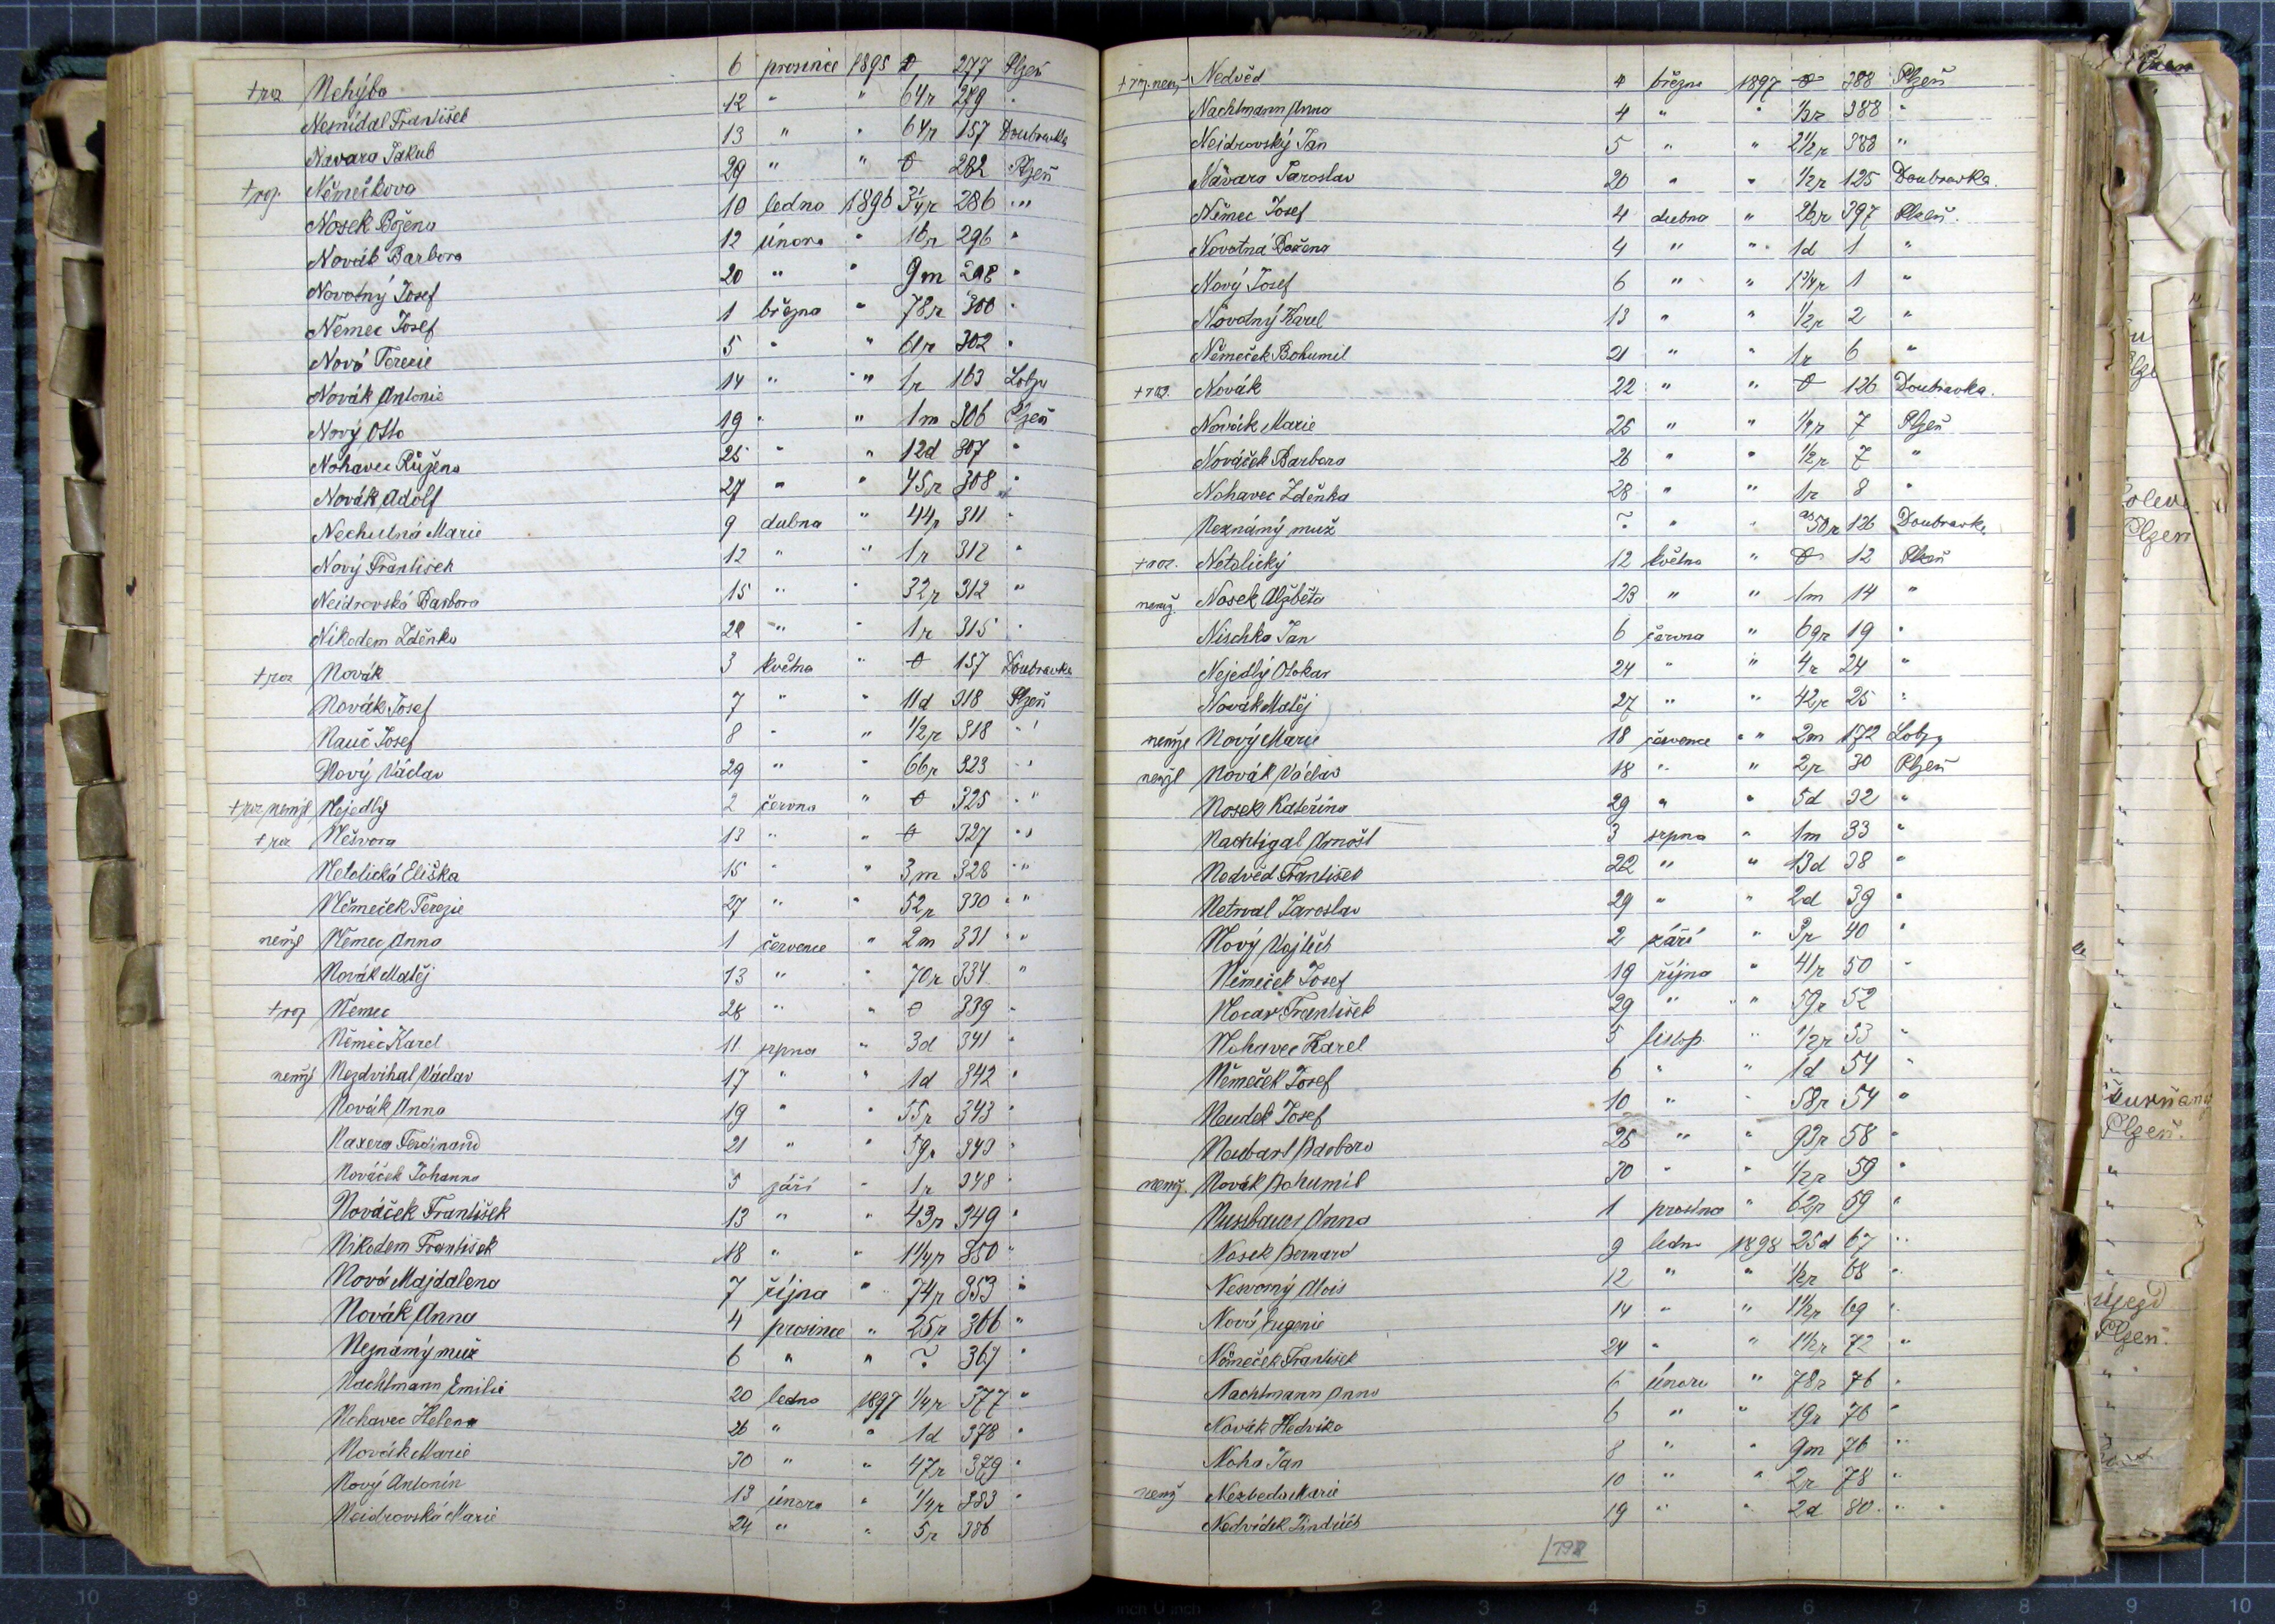 +roz Nehýba 6 prosince 1895 0 277 Plzeň
Nesnídal František 12 " " 64r 279 "
Navara Jakub 13 " " 64r 157 Doubravka
+roz. Němečkova 29 " " 0 282 Plzeň
Nosek Božena 10 ledna 1896 3/4r 286 "
Novák Barbora 12 února " 16r 296 "
Novotný Josef 20 " " 9m 298 "
Němec Josef 1 března " 78r 300 "
Nová Terezie 5 " " 61r 302 "
Novák Antonie 14 " " 1r 163 Lobzy
Nový Otto 19 " " 1m 306 Plzeň
Nohavec Růžena 25 " " 12d 307 "
Novák Adolf 27 " " 45r 308 "
Nechutná Marie 9 dubna " 44r 311 "
Nový František 12 " " 1r 312 "
Neidrovská Barbora 15 " " 32r 312 "
Nikodem Zdeňka " " 1r 315 "
+roz Novák 3 května " 0 157 Doubravka
Novák Josef 7 " " 11d 318 Plzeň
Nauč Josef 8 " " 1/2r 318 "
Nový Václav 29 " " 66r 323 "
+roz nemjž Nejedlý 2 června " 0 325 "
+roz Nešvora 13 " " 0 327 "
Netolická Eliška 15 " " 3m 328 "
Němeček Terezie 27 " " 52r 330 "
Němec Anna 1 července " 2m 331 "
Novák Matěj 13 " " 70r 334 "
+roz Němec 28 " " 0 339 "
Němec Karel 11 srpna " 3d 341 "
Nezdvihal Václav 17 " " 1d 342 "
Novák Anna 19 " " 55r 343 "
Naxera Ferdinand 21 " " 59r 343 "
Nováček Johanna 5 září " 1r 348 "
Nováček František 13 " " 43r 349 "
Nikodem František 18 " " 1 1/4r 350 "
Nová Majdalena 7 října " 74r 353 "
Novák Anna 4 prosince " 25r 366 "
Neznámý muž 6 " " ? 367 "
Nachtmann Emilie 20 ledna 1897 1/4r 377 "
Nohavec Helena 26 " " 1d 378 "
Novák Marie 30 " " 47r 379 "
Nový Antonín 13 února " 1/4r 383 "
Neidrovská Marie 24 " " 5r 386
+roz. nemž Nedvěd 4 března 1897 0 388 Plzeň
Nachtmann Anna 4 " " 1/2r 388 "
Neidrovský Jan 5 " " 2 1/2r 388 "
Navara Jaroslav 20 " " 1/2r 125 Doubravka.
Němec Josef 4 dubna " 26r 397 Plzeň.
Novotná Božena 4 " " 1d 1 "
Nový Josef 6 " " 1 3/4r 1 "
Novotný Karel 13 " " 1/2r 2 "
Němeček Bohumil 21 " " 1r 6 "
+roz. Novák 22 " " 0 126 Doubravka.
Novák Marie 25 " " 1/4r 7 Plzeň
Nováček Barbora 26 " " 1/2r 7 "
Nohavec Zdeňka 28 " " 1r 8 "
Neznámý muž ? " " as 50r 126 Doubravka.
+roz. Netolický 12 května " 0 12 Plzeň
nemž. Nosek Alžběta 23 " " 1m 14 "
Nischka Jan 6 června " 69r 19 "
Nejedlý Otokar 24 " " 4r 24 "
Novák Matěj 27 " " 42r 25 "
Nový Marie 18 července " 2m 172 Lobzy
Novák Václav 18 " " 2r 30 Plzeň
Nosek Kateřina 29 " " 5d 32 "
Nachtigal Arnošt 3 srpna " 1m 33 "
Nedvěd František 22 " " 13d 38 "
Netrval Jaroslav 29 " " 2d 39 "
Nový Vojtěch 2 září " 3r 40 "
Němeček Josef 19 října " 41r 50 "
Nocar František 29 " " 59r 52
Nohavec Karel 5 listop. " 1/2r 53 "
Němeček Josef 6 " " 1d 54 "
Neudek Josef 10 " " 58r 54 "
Neubart Barbora 25 " " 93r 58 "
nemž. Novák Bohumil 30 " " 1/2r 59 "
Nussbauer Anna 1 prosince " 62r 59 "
Nosek Bernard 9 ledna 1898 25d 67 "
Nesvorný Alois 12 " " 1/2r 68 "
Nová Eugenie 14 " " 1 1/2r 69 "
Němeček František 24 " " 1 1/2r 72 "
Nachtmann Anna 6 února " 78r 76 "
Novák Hedvika 6 " " 19r 76 "
Noha Jan 8 " " 9m 76 "
nemž Nezbeda Marie 10 " " 2r 78 "
Nedvídek Jindřich 19 " " 2d 80 "
198
Plzeň
Újezd
Plzeň.